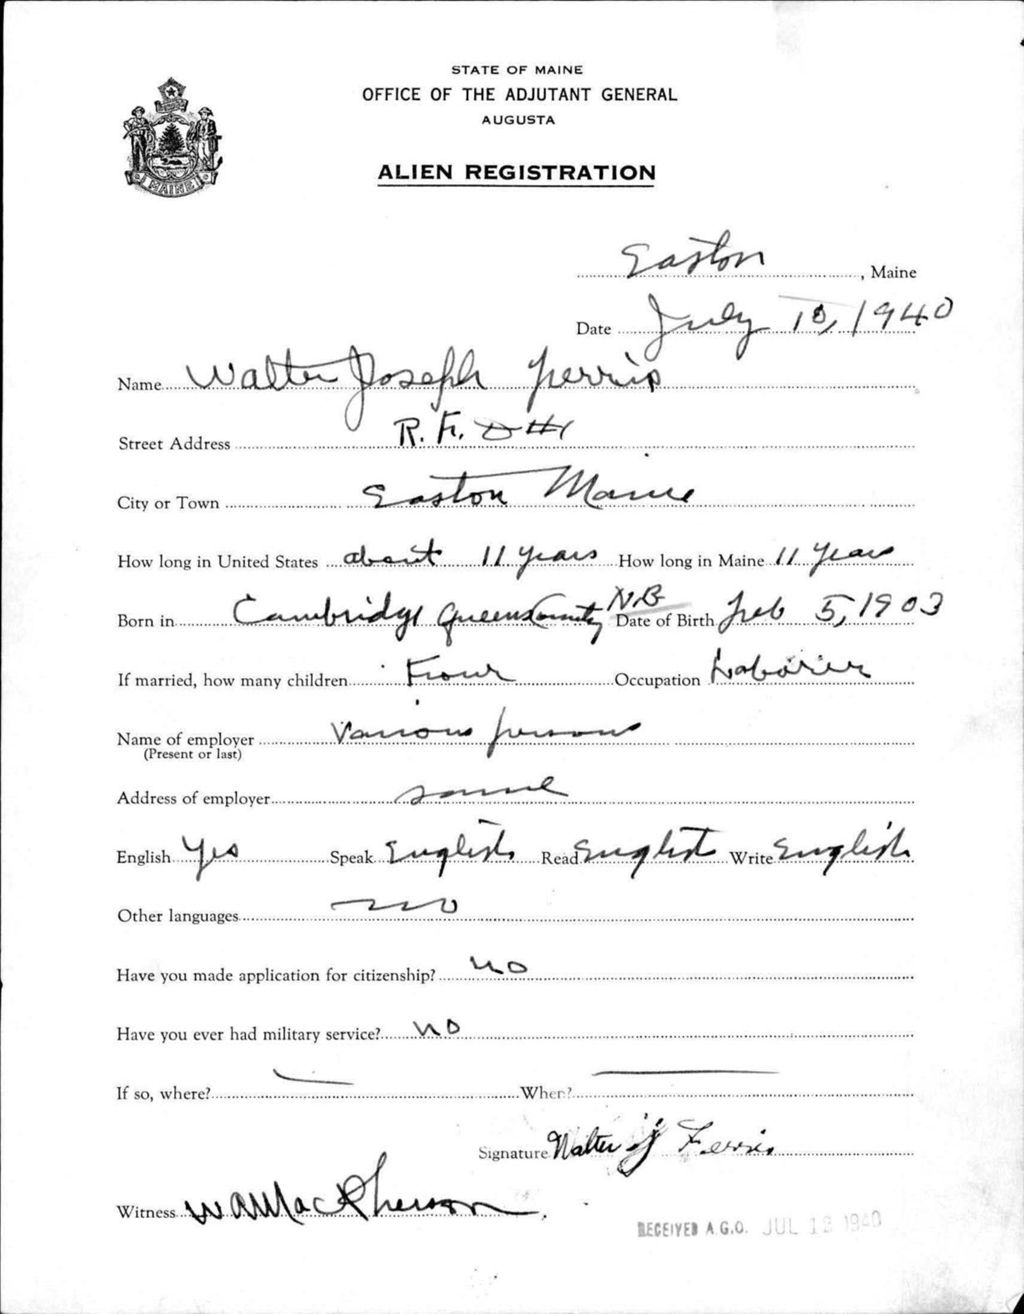 STATE OF MAINE
OFFICE OF THE ADJUTANT GENERAL
AUGUSTA
ALIEN REGISTRATION
MAINE
Easton, Maine
Date July 10, 1940
Name Walter Joseph Ferris
Street Address R. F. D #1
City or Town Easton Maine
How long in United States about 11 years How long in Maine 11 years
Born in Cambridge Queens County N.B Date of Birth Feb 5, 1903
If married, how many children Four Occupation Laborer
Name of employer Various persons
(Present or last)
Address of employer same
English Yes Speak English Read English Write English
Other languages no
Have you made application for citizenship? no
Have you ever had military service? no
If so, where? When?
Signature Walter J Ferris
Witness W A MacPherson
RECEIVED A.G.O. JUL 1940